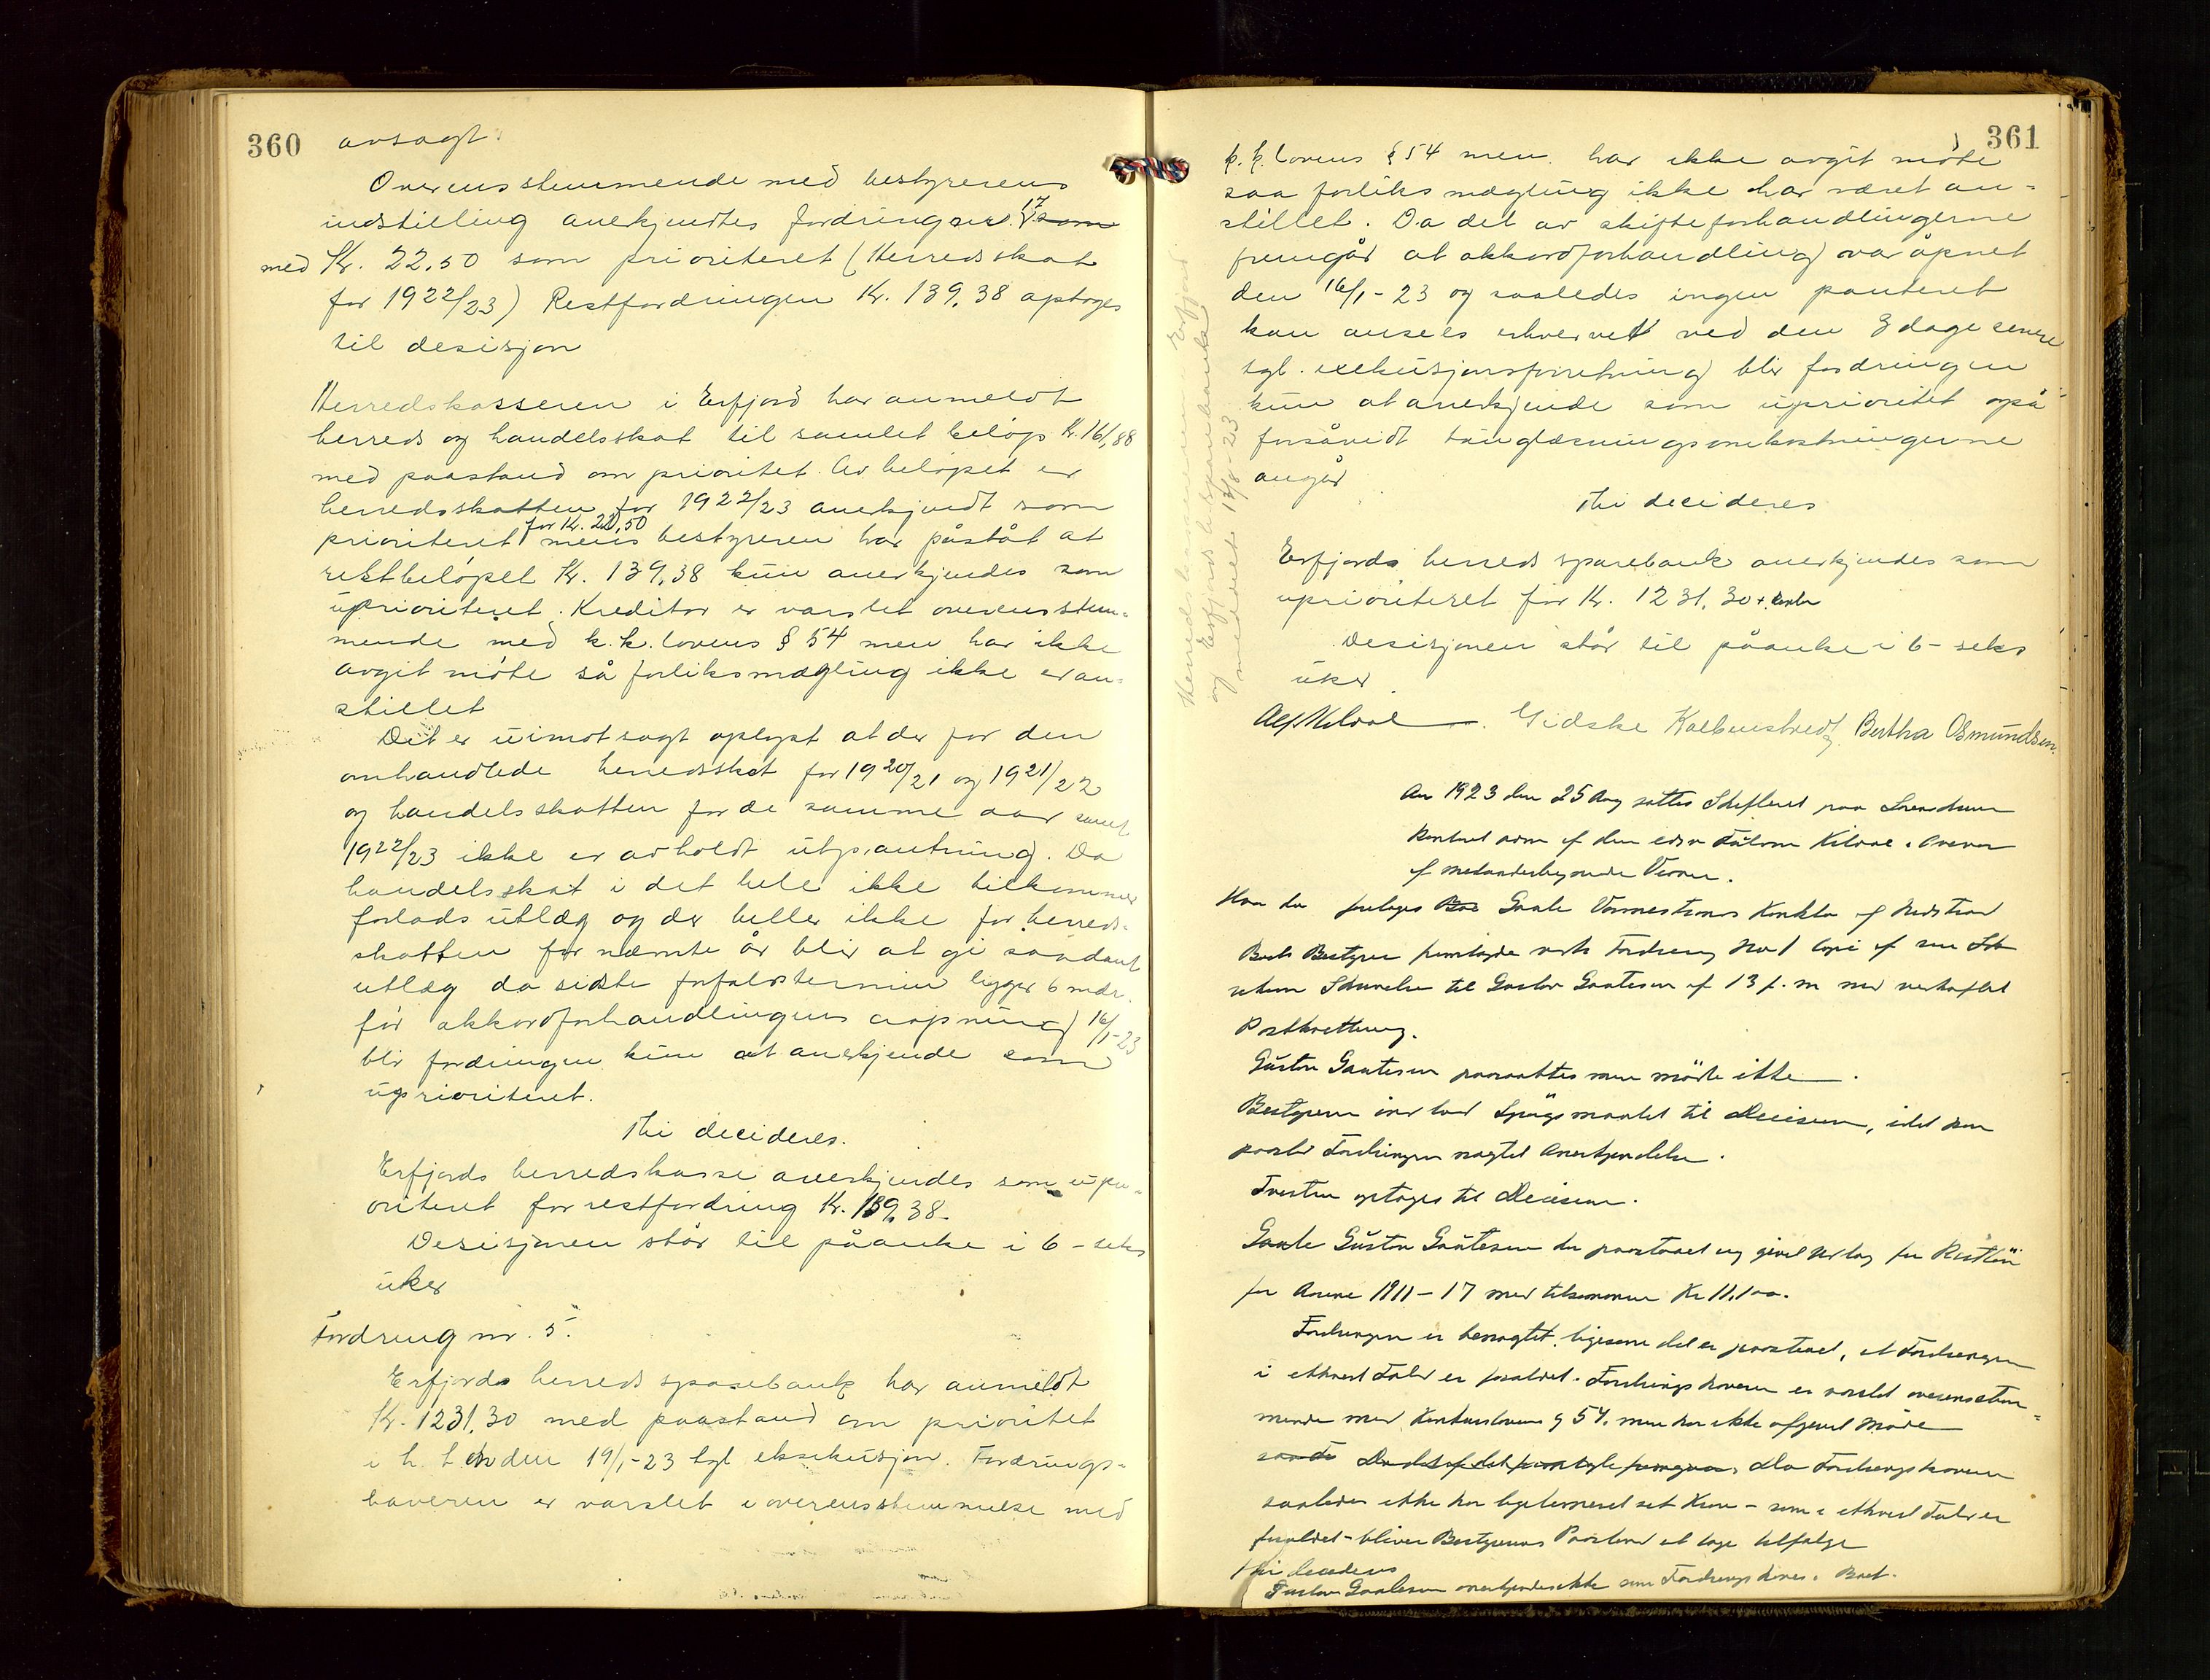 360
avsagt.
Overensstemmende med bestyrerens
indstilling anerkjendtes fordring nr. 17 som
med Kr. 22,50 som prioriteret (Herredsskat
for 1922/23) Restfordringen Kr. 139,38 optoges
til desisjon
Herredskasseren i Erfjord har anmeldt
herreds og handelsskat til samlet beløp Kr. 161,88
med paastand om prioritet. Av beløpet er
herredsskatten for 1922/23 anerkjendt som
for Kr. 22,50
prioriteret mens bestyreren har påståt at
restbeløpet Kr. 139,38 kun anerkjendes som
uprioriteret. Kreditor er varslet overensstem-
mende med k.k. lovens § 54 men har ikke
avgit møte så forliksmægling ikke er an-
stillet
Det er uimotsagt oplyst at der for den
omhandlede herredsskat for 1920/21 og 1921/22
og handelsskatten for de samme aar samt
1922/23 ikke er avholdt utpantning. Da
handelsskat i det hele ikke tilkommer
forlods utlæg og der heller ikke for herreds-
skatten for nævnte år blir at gi saadant
utlæg da sidste forfaldstermin ligger 6 mdr.
før akkordforhandlingens aapning 16/1-23
blir fordringen kun at anerkjende som
uprioriteret.
Thi decideres.
Erfjords herredskasse anerkjendes som upri-
oriteret for restfordring Kr. 139,38.
Desisjonen står til påanke i 6 - seks
uker
Fordring nr. 5.
Erfjords herreds sparebank har anmeldt
Kr. 1231,30 med paastand om prioritet
i h. t. den 19/1-23 tgl. eksekusjon. Fordrings-
haveren er varslet i overensstemmelse med
361
k.k. lovens § 54 men har ikke avgit møte
saa forliksmægling ikke har været an-
stillet. Da det av skifteforhandlingerne
fremgår at akkordforhandling var åpnet
den 16/1-23 og saaledes ingen panteret
kan ansees erhvervet ved den 3 dage senere
tgl. exekusjonsforretning blir fordringen
kun at anerkjende som uprioritet også
forsåvidt tinglæsningsomkostningerne
angår
Thi decideres
Erfjords herreds sparebank anerkjendes som
uprioriteret for Kr. 1231,30 + renter
Desisjonen står til påanke i 6 - seks
uker
Alf Kildal. Gidske Kolbenstvedt, Bertha Osmundsen.
Herredskasseren Erfjord
og Erfjords h. sparebank
meddelt 13/8-23
Aar 1923 den 25 Aug sattes Skifteret paa Sorenskriver
kontoret adm af den edsv Fuldm Kildal i Overvær
af medunderskrevne Vidner.
Hvor da foretoges Boe Gaute Vormestrands Konkbo af Nedstrand
Boets Bestyrer fremlagde vedr Fordring No 1 Copi af sin
Skrivelse til Gustav Gautesen af 13 f. m med vedhæftet
Postkvittering.
Gustav Gautesen paaraabtes men mødte ikke.
Bestyreren indlod Spørgsmaalet til Decision, idet han
paastod Fordringen nægtet Anerkjendelse.
Tvisten optoges til Decision.
Gaute Gustav Gautesen har paastaaet sig givet Udlæg for Restløn
for Aarene 1911-17 med tilsammen Kr 11,100.
Fordringen er benægtet, ligesom det er paastaaet, at Fordringen
i ethvert Fald er forældet. Fordringshaveren er varslet overensstem-
mende med Konkurslovens § 54. men har ikke afgivet Møde
saa de Da det af det fremlagte fremgaar, Da Fordringshaveren
saaledes ikke har legitimeret sit Krav - som i ethvert Fald er
forældet - bliver Bestyrerens Paastand at tage tilfølge
Thi decideres
Gustav Gautesen anerkjendes ikke som Fordringshaver i Boet.